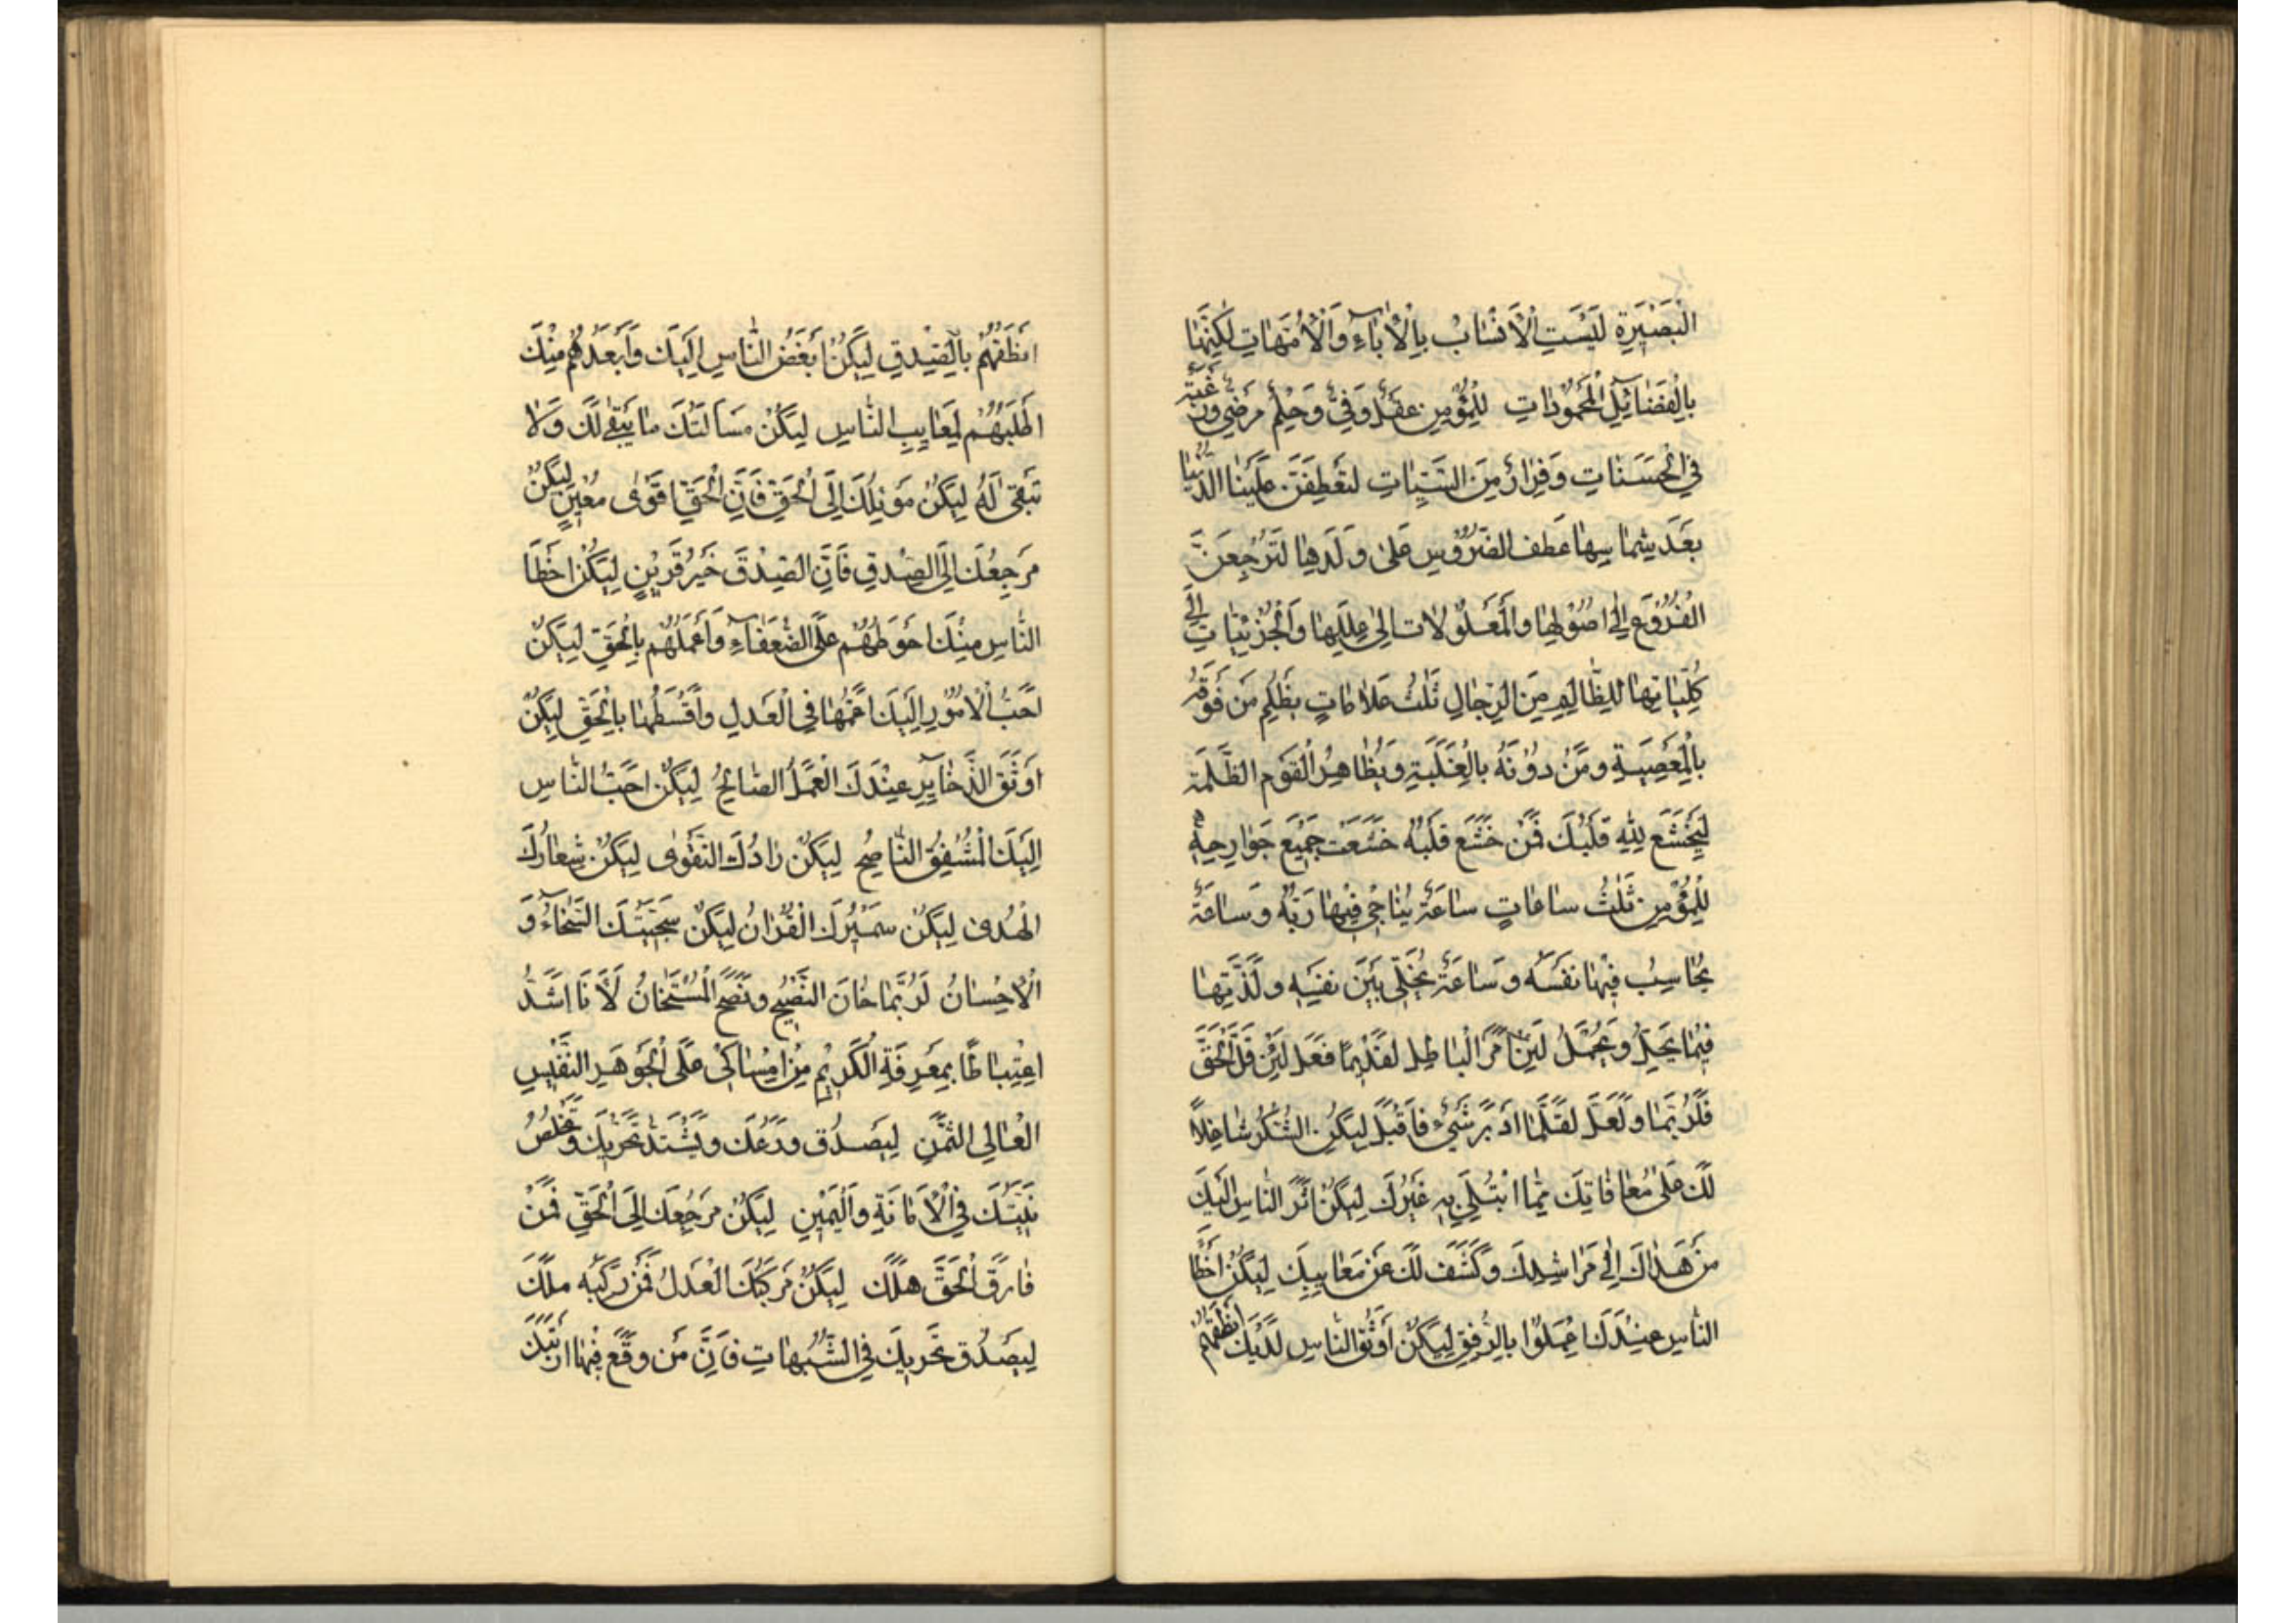 البَصِيرَةِ لَيْسَتِ الْأَنْسَابُ بِالْأٰبَاءِ وَالْأُمَّهَاتِ لَكِنَّهَا
بِالْفَضَائِلِ الْمَحْمُودَاتِ لِلْمُؤْمِنِ عَقْلٌ وَفِيٌّ وَحِلْمٌ مَرْضِيٌّ وَرَغْبَةٌ
فِي الْحَسَنَاتِ وَفِرَارٌ مِنَ السَّيِّئَاتِ لَتَعْطِفَنَّ عَلَيْنَا الدُّنْيَا
بَعْدَ شِمَاسِهَا عَطْفَ الضَّرُوسِ عَلَى وَلَدِهَا لَتَرْجِعَنَّ
الْفُرُوعَ إِلَى اصُولِهَا وَالْمَعْلُولَاتِ إِلَى عِلَلِهَا وَالْجُزْئِيَّاتِ إِلَى
كُلِّيَّاتِهَا لِلظَّالِمِ مِنَ الرِّجَالِ ثَلٰثُ عَلَامَاتٍ يَظْلِمُ مَنْ فَوْقَهُ
بِالْمَعْصِيَةِ وَمَنْ دُونَهُ بِالْغَلَبَةِ وَيُظَاهِرُ الْقَوْمَ الظَّلَمَةَ
لِيَخْشَعْ لِلّٰهِ قَلْبُكَ فَمَنْ خَشَعَ قَلْبُهُ خَشَعَتْ جَمِيعُ جَوَارِحِهِ
لِلْمُؤْمِنِ ثَلٰثُ سَاعَاتٍ سَاعَةٌ يُنَاجِي فِيهَا رَبَّهُ وَسَاعَةٌ
يُحَاسِبُ فِيهَا نَفْسَهُ وَسَاعَةٌ يُخَلِّي بَيْنَ نَفْسِهِ وَلَذَّتِهَا
فِيمَا يَحِلُّ وَيَجْمُلُ لَئِنْ أَمِرَ الْبَاطِلُ لَقَدِيمًا فَعَلَ لَئِنْ قَلَّ الْحَقُّ
فَلَرُبَّمَا وَلَعَلَّ لَقَلَّمَا ادْبَرَ شَيْءٌ فَاقْبَلَ لِيَكُنِ الشُّكْرُ شَاغِلًا
لَكَ عَلَى مُعَافَاتِكَ مِمَّا ابْتُلِيَ بِهِ غَيْرُكَ لِيَكُنْ اثَرُ النَّاسِ إِلَيْكَ
مَنْ هَدَاكَ إِلَى مَرَاشِدِكَ وَكَشَفَ لَكَ عَنْ مَعَايِبِكَ لِيَكُنْ احْظَى
النَّاسِ عِنْدَكَ اعْمَلُوا بِالرِّفْقِ لِيَكُنْ أَوْثَقُ النَّاسِ لَدَيْكَ انْطَقُهُمْ
انْطَقُهُمْ بِالصِّدْقِ لِيَكُنْ ابْغَضُ النَّاسِ إِلَيْكَ وَأَبْعَدُهُمْ مِنْكَ
اطْلَبُهُمْ لِمَعَايِبِ النَّاسِ لِيَكُنْ مَسْأَلَتُكَ مَا يَبْقَى لَكَ وَلَا
تَبْقَى لَهُ لِيَكُنْ مَوْئِلُكَ إِلَى الْحَقِّ فَإِنَّ الْحَقَّ اقْوَى مُعِينٍ لِيَكُنْ
مَرْجِعُكَ إِلَى الصِّدْقِ فَإِنَّ الصِّدْقَ خَيْرُ قَرِينٍ لِيَكُنْ احْظَى
النَّاسِ مِنْكَ احْوَطُهُمْ عَلَى الضُّعَفَاءِ وَأَعْمَلُهُمْ بِالْحَقِّ لِيَكُنْ
احَبُّ الْأُمُورِ إِلَيْكَ اعَمُّهَا فِي الْعَدْلِ وَأَقْسَطُهَا بِالْحَقِّ لِيَكُنْ
اوْثَقُ الذَّخَائِرِ عِنْدَكَ الْعَمَلُ الصَّالِحُ لِيَكُنْ احَبُّ النَّاسِ
إِلَيْكَ الْمُشْفِقُ النَّاصِحُ لِيَكُنْ زَادُكَ التَّقْوٰى لِيَكُنْ شِعَارُكَ
الْهُدَى لِيَكُنْ سَمِيرُكَ الْقُرْانُ لِيَكُنْ سَجِيَّتُكَ السَّخَاءُ وَ
الْإِحْسَانُ لَرُبَّمَا خَانَ النَّصِيحُ وَنَصَحَ الْمُسْتَخَانُ لَأَنَا اشَدُّ
اغْتِبَاطًا بِمَعْرِفَةِ الْكَرِيمِ مِنْ امْسَاكِي عَلَى الْجَوْهَرِ النَّفِيسِ
الْغَالِي الثَّمَنِ لِيَصْدُقْ وَرَعُكَ وَيَشْتَدَّ تَحَرِّيكَ وَتَخْلُصْ
نِيَّتُكَ فِي الْأَمَانَةِ وَالْيَمِينِ لِيَكُنْ مَرْجِعُكَ إِلَى الْحَقِّ فَمَنْ
فَارَقَ الْحَقَّ هَلَكَ لِيَكُنْ مَرْكَبُكَ الْعَدْلُ فَمَنْ رَكِبَهُ مَلَكَ
لِيَصْدُقْ تَحَرِّيكَ فِي الشُّبُهَاتِ فَإِنَّ مَنْ وَقَعَ فِيهَا ارْتَبَكَ